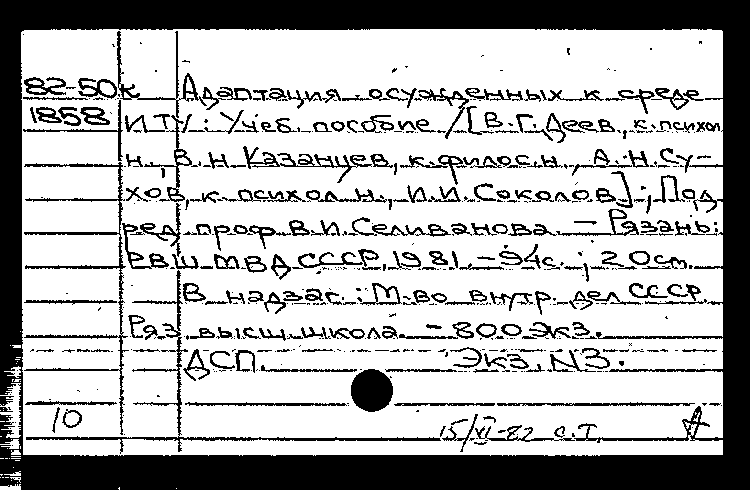 82-50к Адаптация осужденных к среде
1858 ИТУ: Учеб. пособие / [В.Г. Деев, к. психол.
н., В.Н. Казанцев, к. филос. н., А.Н. Су-
хов, к. психол. н., И.И. Соколов]; Под
ред. проф. В.И. Селиванова. - Рязань:
РВШ МВД СССР, 1981. - 94с.; 20см.
В надзаг.: М-во внутр. дел СССР.
Ряз. высш. школа. - 800 экз.
ДСП. Экз. N3.
10
15/XI-82 С.Т. А